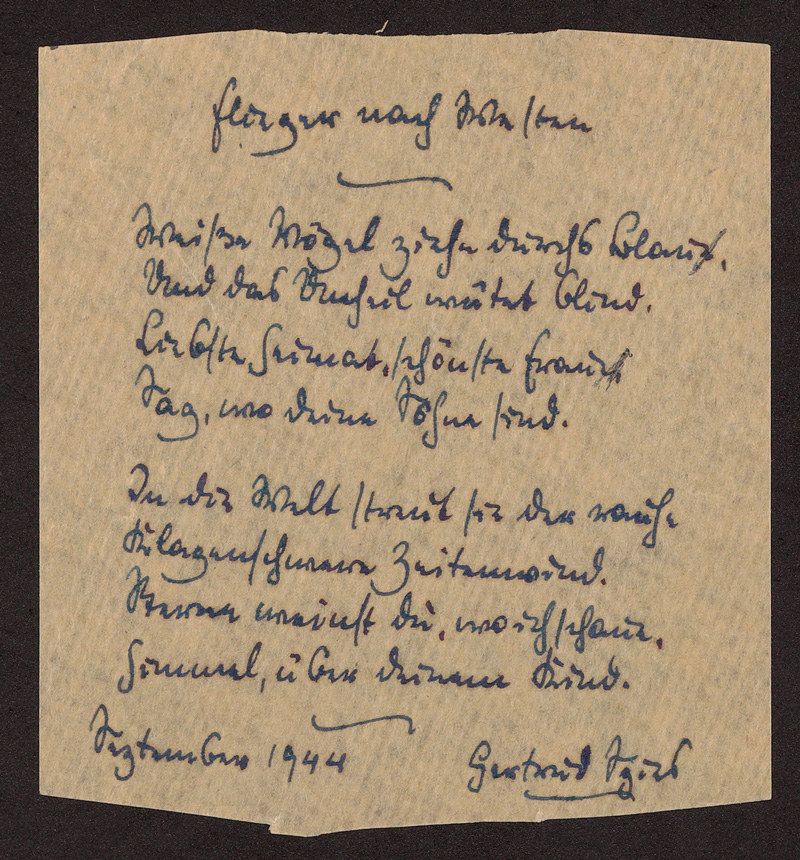 Flieger nach Westen
Weiße Vögel ziehn durchs Blau,
Und das Unheil wütet blind.
Liebste Heimat, schönste Frau
Sag, wo deine Söhne sind.
In die Welt streut sie der rauhe
Klagenschwere Zeitenwind.
Sterne weinst du, wo ich schaue,
Himmel, über deinem Kind.
September 1944 Gertrud Spies